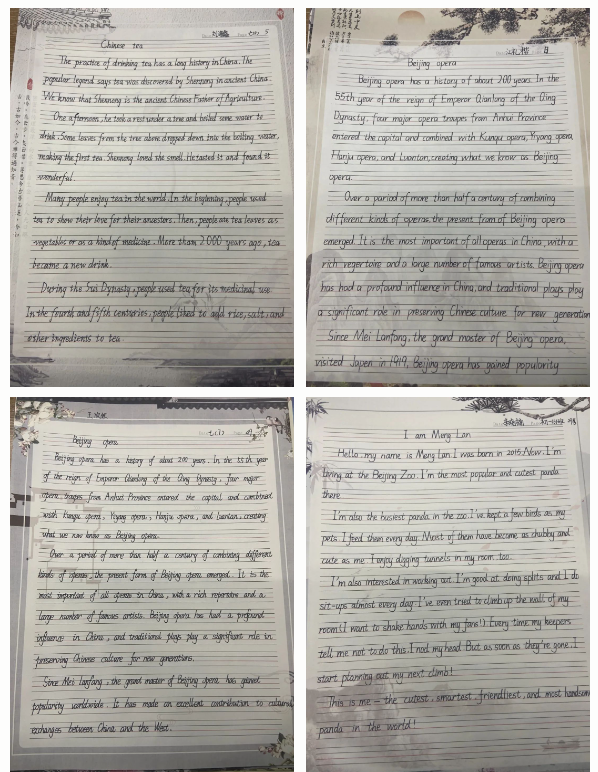 Chinese tea
The practice of drinking tea has a long history in China. The
popular legend says tea was discovered by Shennong in ancient China.
We know that Shennong is the ancient Chinese Father of Agriculture.
One afternoon, he took a rest under a tree and boiled some water to
drink. Some leaves from the tree above dropped down into the boiling water,
making the first tea. Shennong loved the smell. He tasted it and found it
wonderful.
Many people enjoy tea in the world. In the beginning, people used
tea to show their love for their ancestors. Then, people ate tea leaves as
vegetables or as a kind of medicine. More than 2000 years ago, tea
became a new drink.
During the Sui Dynasty, people used tea for its medicinal use.
In the fourth and fifth centuries, people liked to add rice, salt, and
other ingredients to tea.
Beijing opera
Beijing opera has a history of about 200 years. In the
55th year of the reign of Emperor Qianlong of the Qing
Dynasty, four major opera troupes from Anhui Province
entered the capital and combined with Kunqu opera, Yiyang opera,
Hanju opera, and Luantan, creating what we know as Beijing
opera.
Over a period of more than half a century of combining
different kinds of operas, the present from of Beijing opera
emerged. It is the most important of all operas in China, with a
rich repertoire and a large number of famous artists. Beijing opera
has had a profound influence in China, and traditional plays play
a significant role in preserving Chinese culture for new generation
Since Mei Lanfang, the grand master of Beijing opera,
visited Japen in 1919, Beijing opera has gained popularity
Beijing opera
Beijing opera has a history of about 200 years. In the 55th year
of the reign of Emperor Qianlong of the Qing Dynasty, four major
opera troupes from Anhui Province entered the capital and combined
with Kunqu opera, Yiyang opera, Hanju opera, and Luantan, creating
what we now know as Beijing opera.
Over a period of more than half a century of combining different
kinds of operas, the present form of Beijing opera emerged. It is the
most important of all operas in China, with a rich repertoire and a
large number of famous artists. Beijing opera has had a profound
influence in China, and traditional plays play a significant role in
preserving Chinese culture for new generations.
Since Mei Lanfang, the grand master of Beijing opera has gained
popularity worldwide. It has made an excellent contribution to cultural
exchanges between China and the West.
I am Meng Lan
Hello, my name is Meng Lan. I was born in 2015. Now, I'm
living at the Beijing Zoo. I'm the most popular and cutest panda
there.
I'm also the busiest panda in the zoo. I've kept a few birds as my
pets. I feed them every day. Most of them have become as chubby and
cute as me. I enjoy digging tunnels in my room, too.
I'm also interested in working out. I'm good at doing splits and I do
sit-ups almost every day. I've even tried to climb up the wall of my
room! (I want to shake hands with my fans!) Every time, my keepers
tell me not to do this. I nod my head. But as soon as they're gone, I
start planning out my next climb!
This is me — the cutest, smartest, friendliest, and most handsom
panda in the world!